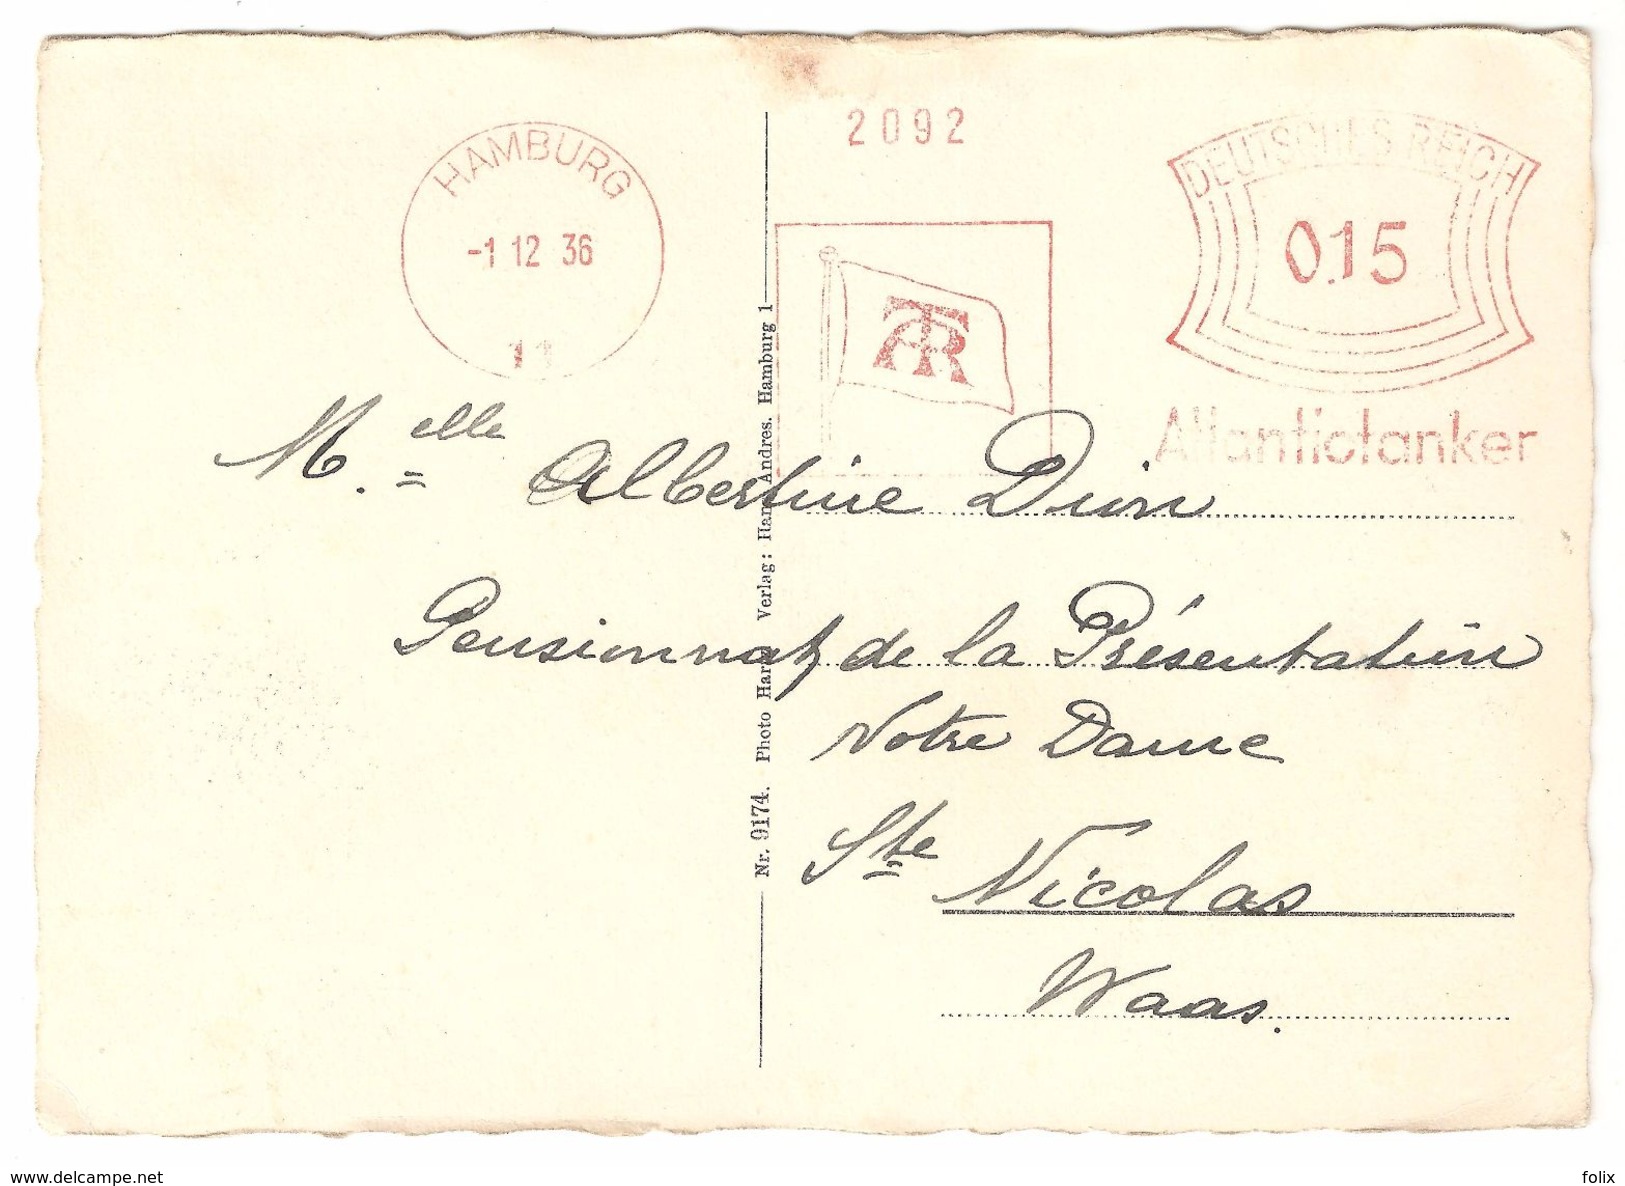 2092
HAMBURG
-1 12 36
11
DEUTSCHES REICH
0.15
Atlantictanker
M.elle Albertine Dion
Pensionnat de la Présentation
Notre Dame
Ste Nicolas
Waas.
Nr. 9174. Photo Hans Verlag: Hans Andres. Hamburg 1
www.delcampe.net
folix